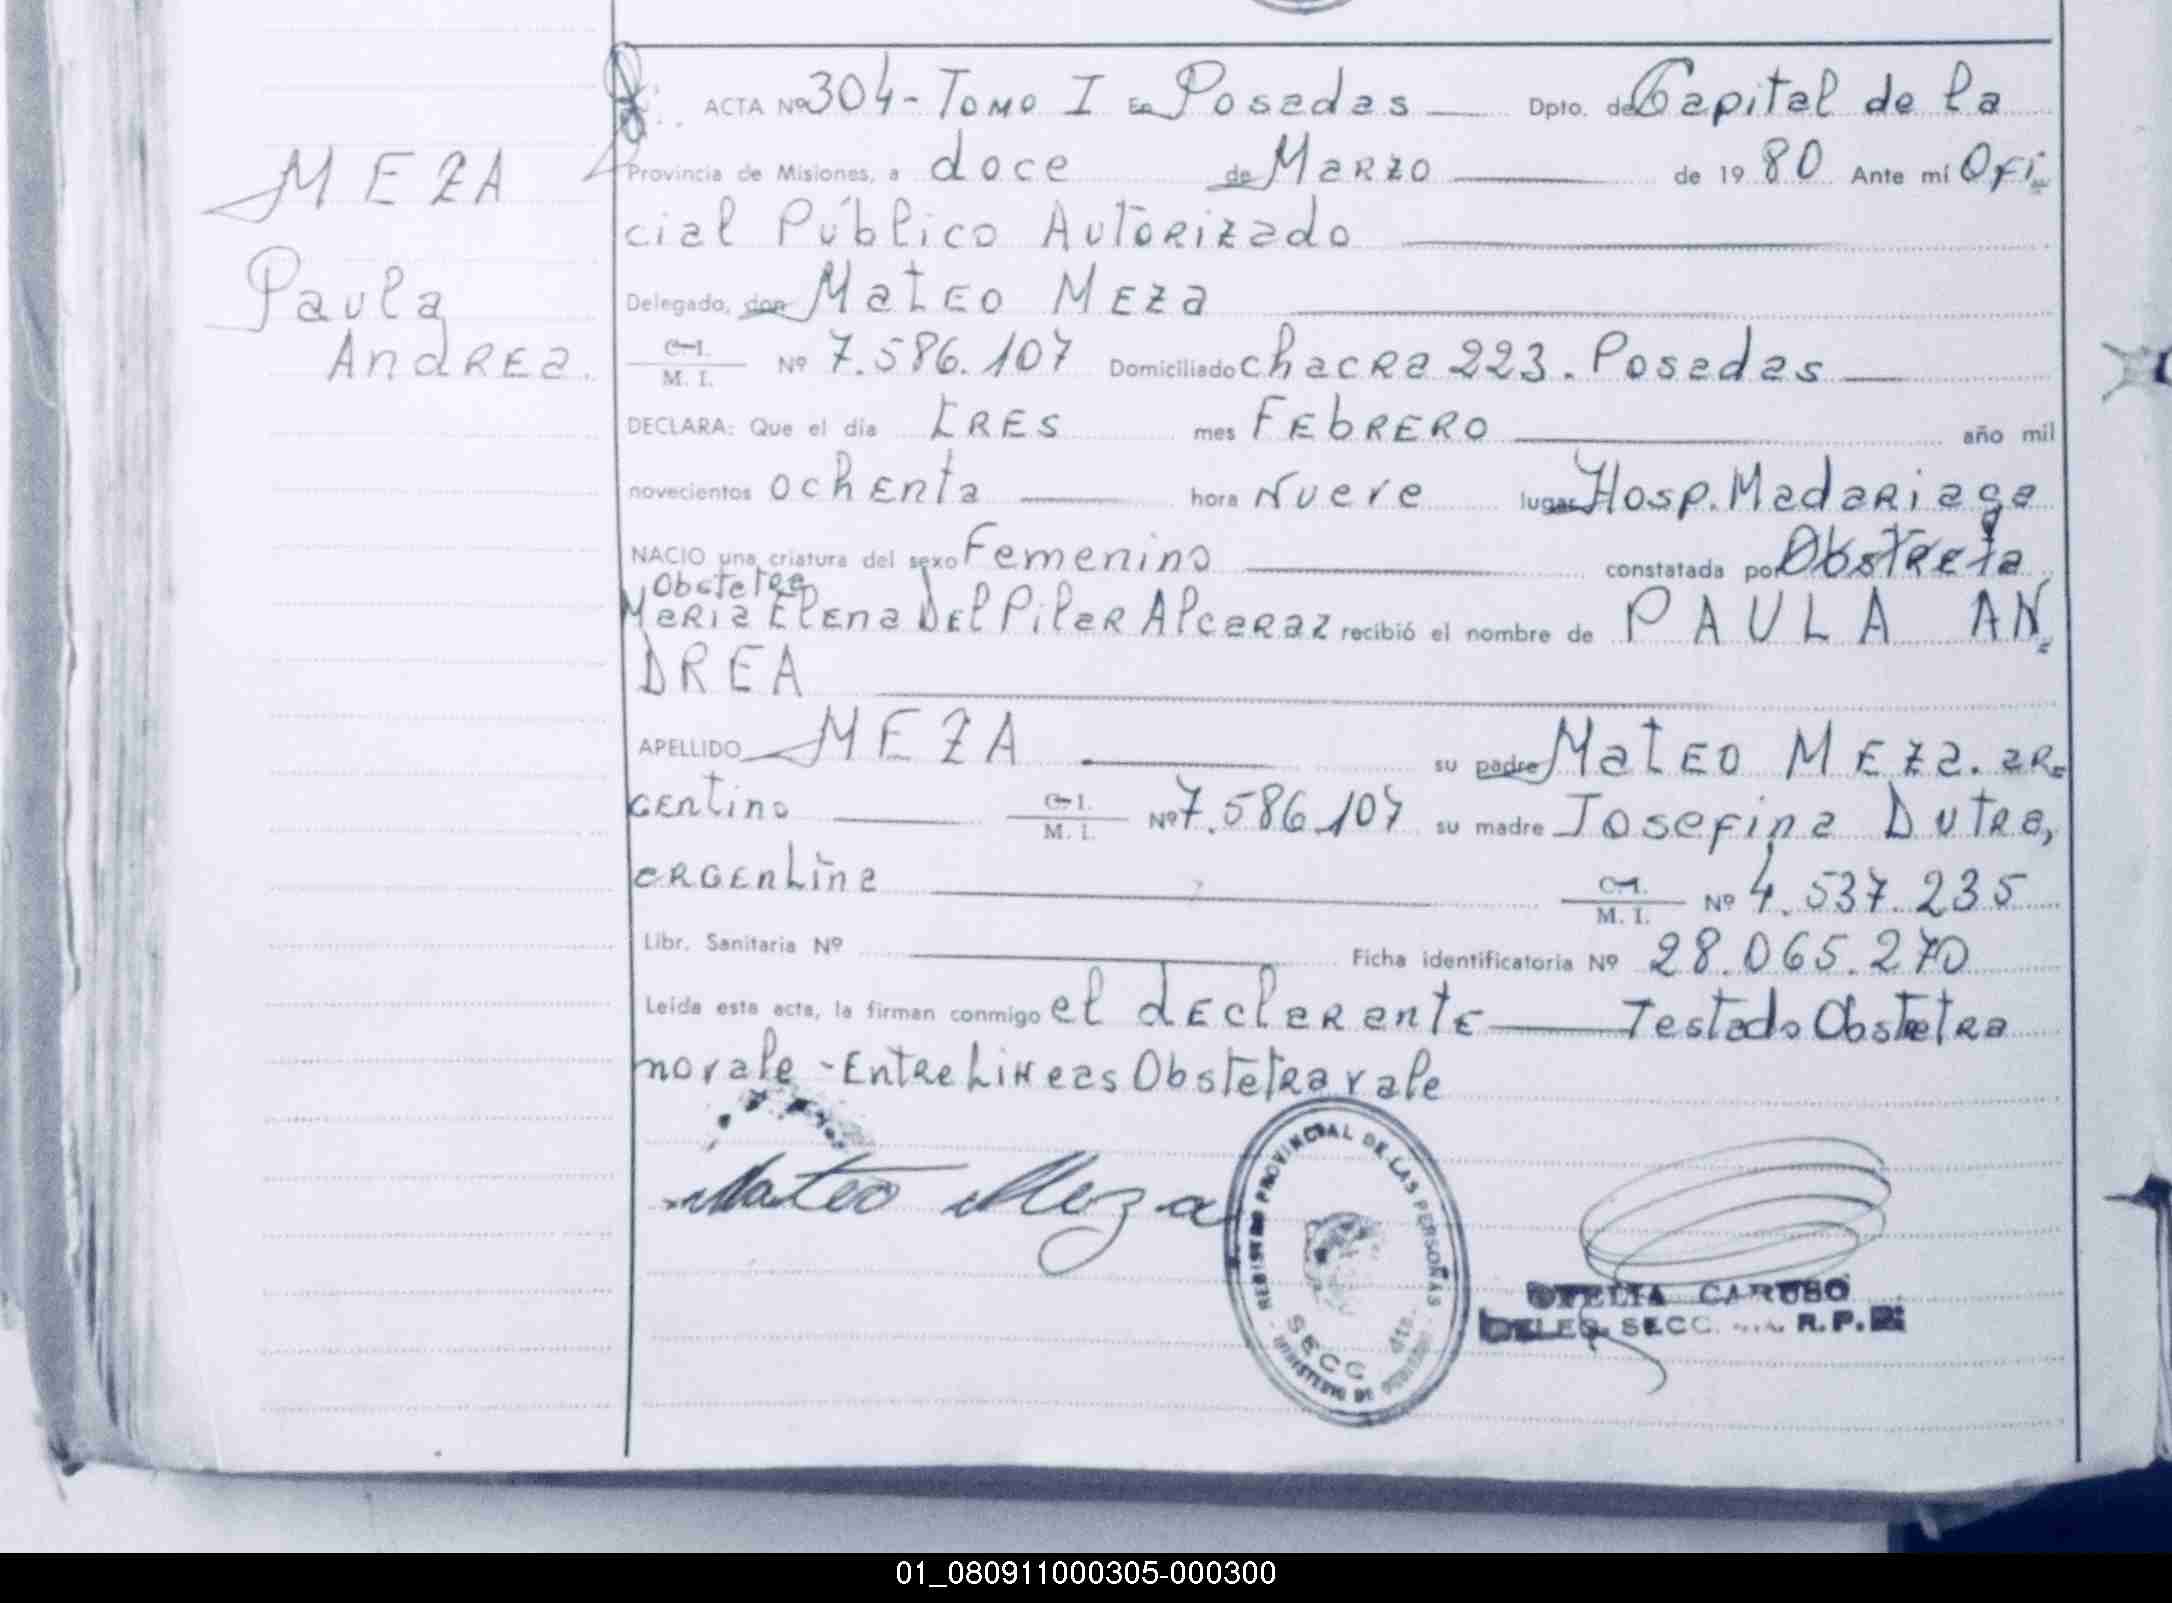 MEZA
Paula
Andrea.
ACTA Nº 304 - Tomo I En Posadas Dpto. de Capital de la
Provincia de Misiones, a doce de Marzo de 1980 Ante mí Ofi
cial Público Autorizado
Delegado, don Mateo Meza
C. I. / M. I. Nº 7.586.107 Domiciliado chacra 223. Posadas
DECLARA: Que el día tres mes Febrero año mil
novecientos ochenta hora Nueve lugar Hosp. Madariaga
NACIO una criatura del sexo Femenino constatada por Obstreta
Obstetra
Maria Elena Del Pilar Alcaraz recibió el nombre de PAULA AN
DREA
APELLIDO MEZA su padre Mateo Meza. ar
gentino C. I. / M. I. Nº 7.586.107 su madre Josefina Dutra,
argentina C. I. / M. I. Nº 4.537.235
Libr. Sanitaria Nº Ficha identificatoria Nº 28.065.270
Leída esta acta, la firman conmigo el declarante Testado Obstetra
no vale - Entre Lineas Obstetra vale
Mateo Meza
REGISTRO PROVINCIAL DE LAS PERSONAS
SECC
MINISTERIO DE GOBIERNO
OFELIA CARUSO
DELEG. SECC. R.P.P.
01_080911000305-000300